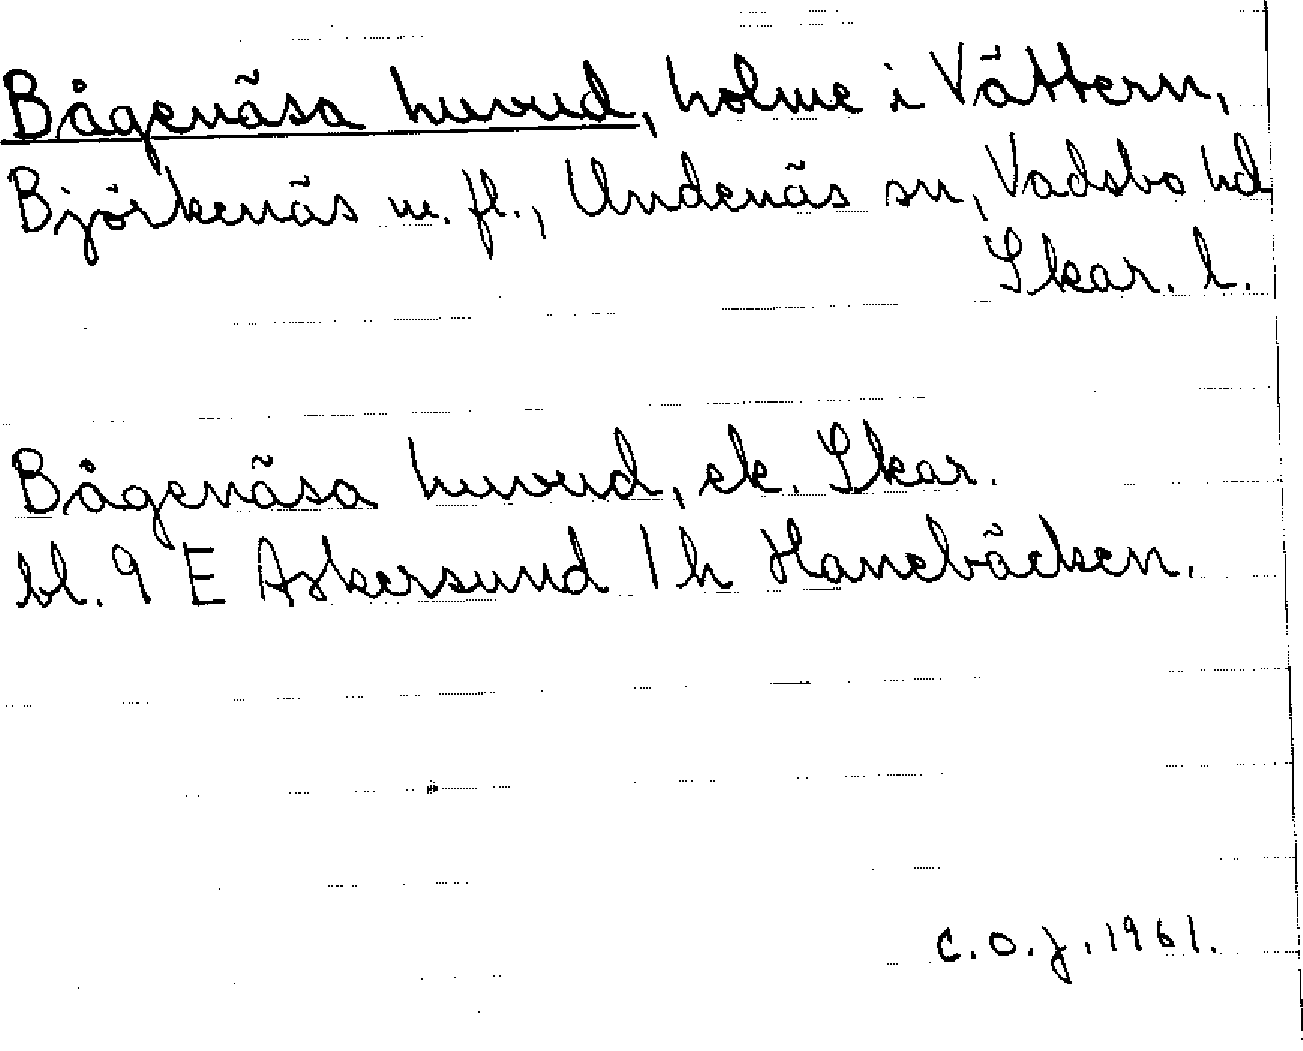 Bågenäsa huvud, holme i Vättern,
Björkenäs m. fl., Undenäs sn, Vadsbo hd
Skar. l.
Bågenäsa huvud, ek. Skar.
bl. 9 E Askersund 1 h Hanebäcken.
C.O.J. 1961.